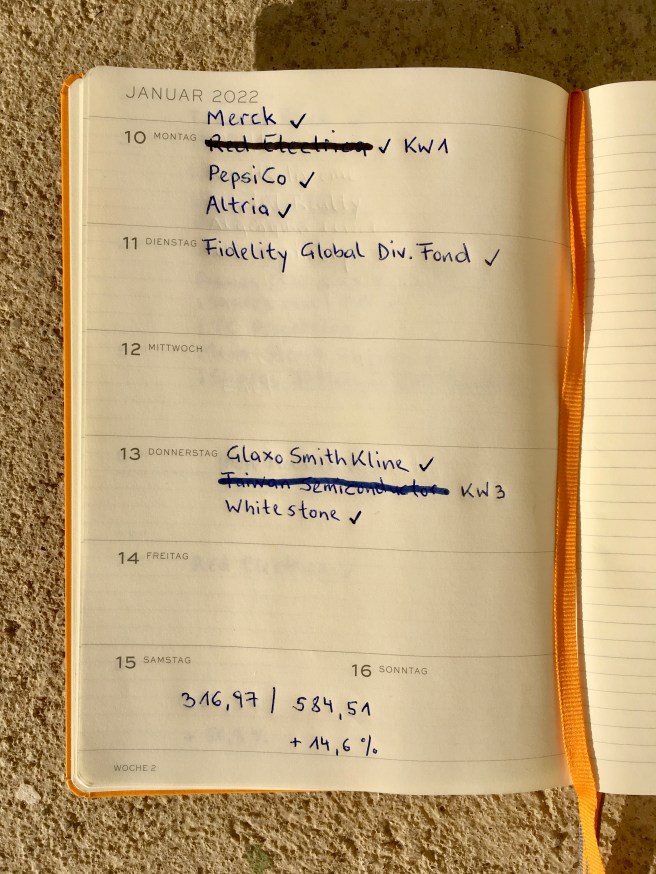 JANUAR 2022
Merck ✓
10 MONTAG Red Electrica ✓ KW1
PepsiCo ✓
Altria ✓
11 DIENSTAG Fidelity Global Div. Fond ✓
12 MITTWOCH
13 DONNERSTAG Glaxo Smith Kline ✓
Taiwan Semiconductor KW3
Whitestone ✓
14 FREITAG
15 SAMSTAG
16 SONNTAG
316,97 | 584,51
+ 14,6 %
WOCHE 2